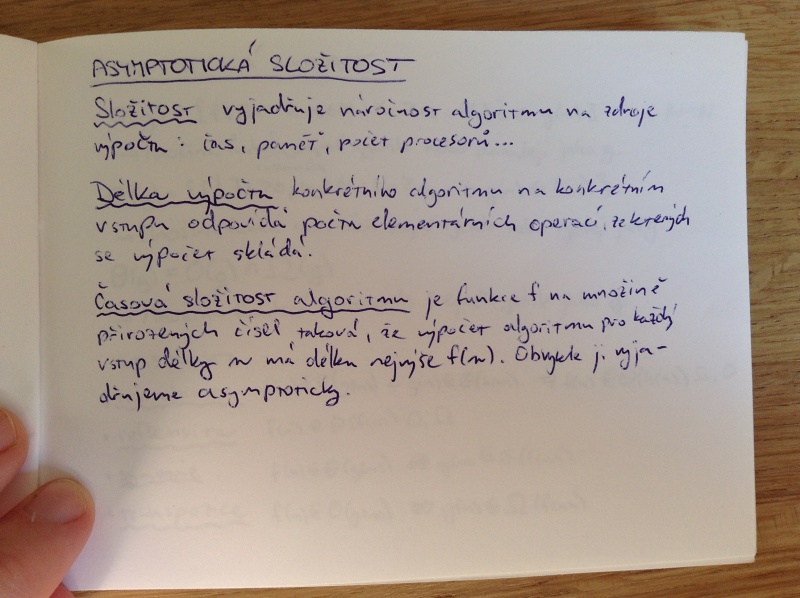 ASYMPTOTICKÁ SLOŽITOST
Složitost vyjadřuje náročnost algoritmu na zdroje
výpočtu: čas, paměť, počet procesorů...
Délka výpočtu konkrétního algoritmu na konkrétním
vstupu odpovídá počtu elementárních operací, ze kterých
se výpočet skládá.
Časová složitost algoritmu je funkce f na množině
přirozených čísel taková, že výpočet algoritmu pro každý
vstup délky n má délku nejvýše f(n). Obvykle ji vyja-
dřujeme asymptoticky.